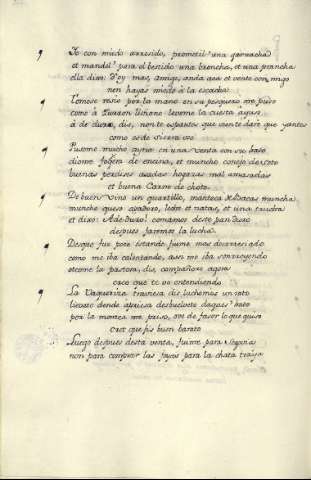 Yo con miedo arresido, prometil' una garnacha
et mandel' para el bestido una broncha, et una prancha
ella dixo: D'oy mas, amigo, anda aca et vente conmigo
non hayas miedo à la escacha
Tomose resio por la mano en su pesquero me puso
como à Zuron liviano levome la cuesta ayuso
à de duro, dis, non te espantes que yo te daré que yantes
como es de sierra uso
Pusome mucho ayna en una venta con su
diome foguera de ensina, et muncho conejo de soto
buenas perdises asadas hogazas mal amasadas
et buena Carne de choto
De buen vino un quartillo, manteca de Bacas muncha
muncho queso asadero, leche et natas, et una trucha
et dixo: Ade duro! comamos deste pan duro
despues faremos la lucha
Desque fue poco estando fuime mas desarresido
como me iba calentando, asi me iba sonrreyendo
oteome la pastora, dis, compañero agora
creo que te vo entendiendo
La Vaqueriza traviesa dis luchemos un rato
lievate dende apriesa desbuelvete daques hato
por la moneca me priso, ove de faser lo que quiso
creet que fis buen barato
Luego despues desta venta, fuime para
non para comprar las joyas para la chata traya